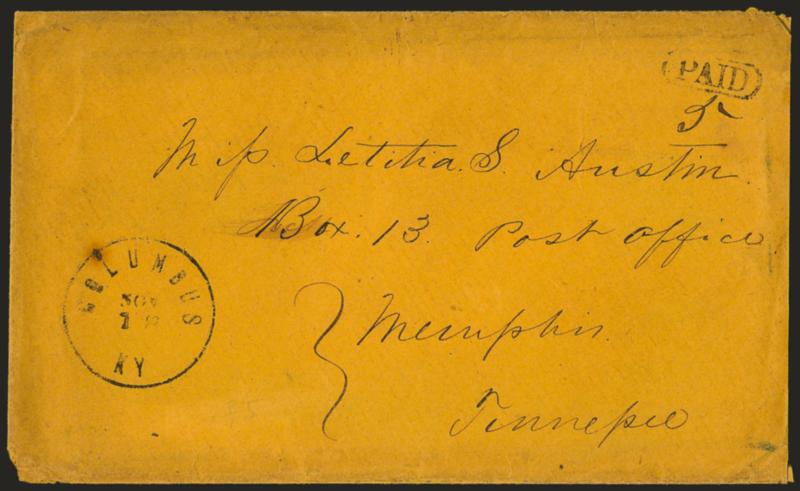 PAID
5
Miss. Letitia. S. Austin.
Box. 13. Post office
Memphis.
Tennessee
COLUMBUS
NOV
KY